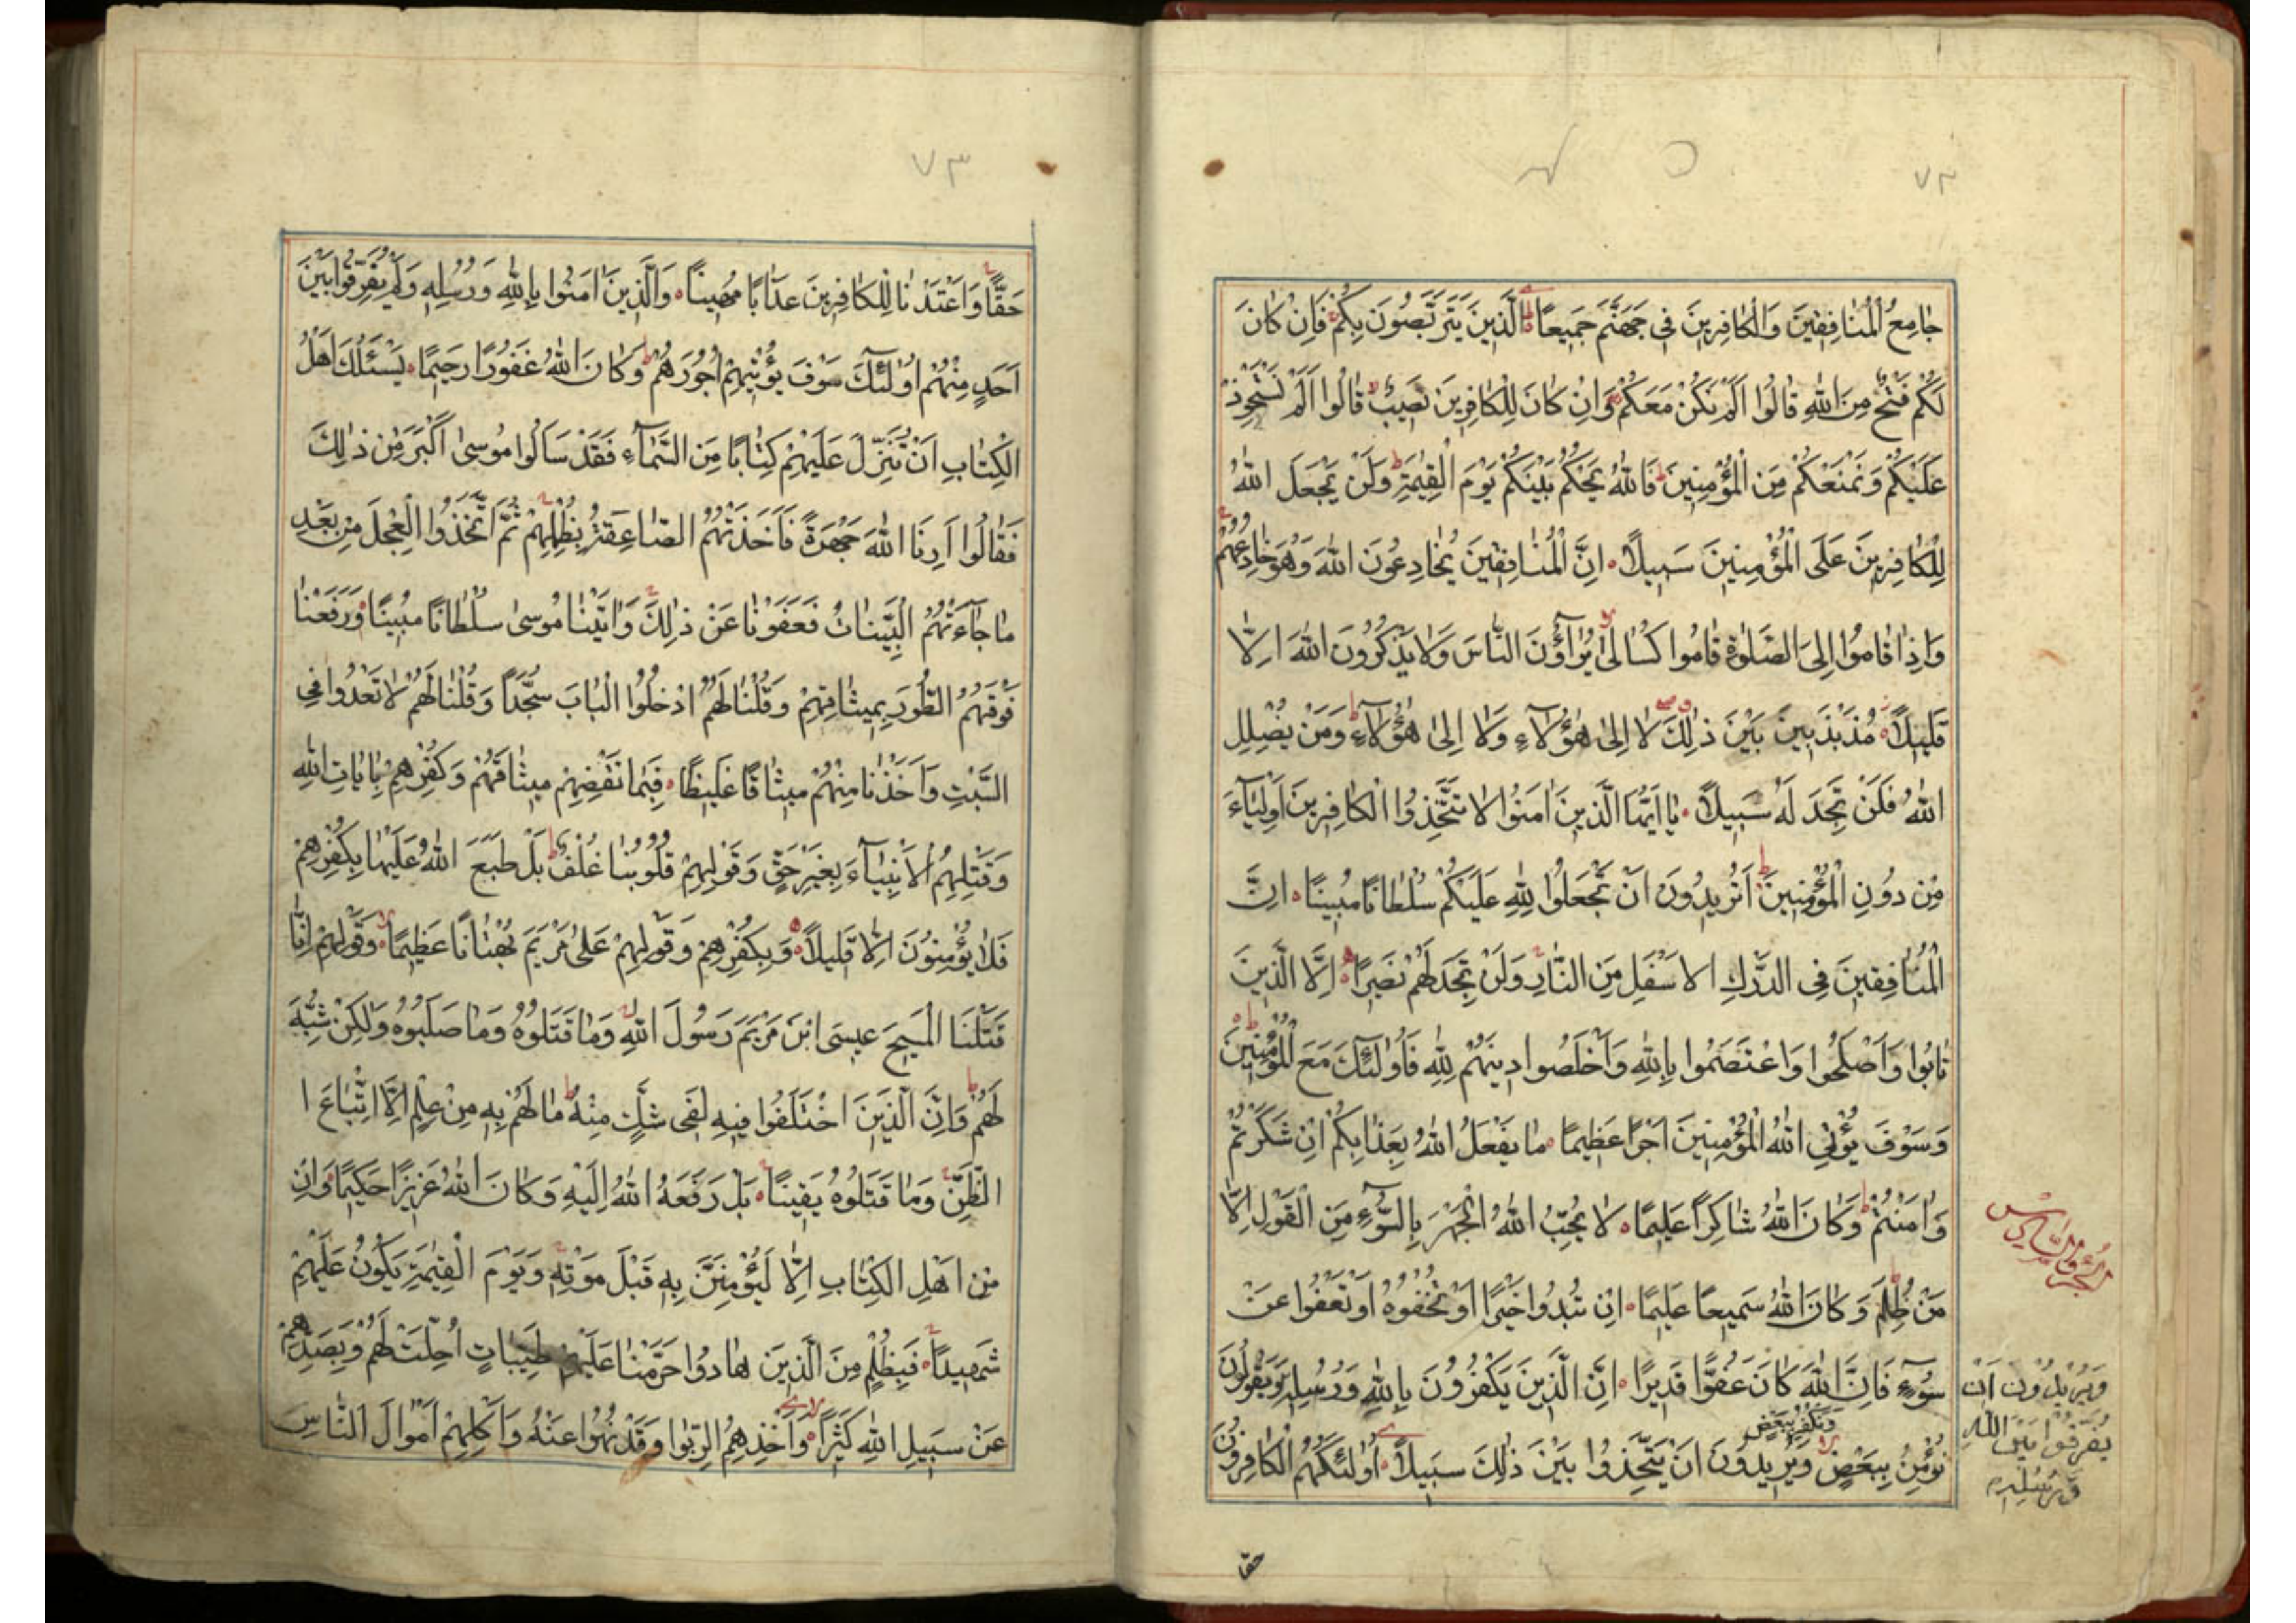 ٧٣
جامِعُ الْمُنافِقينَ وَالْكافِرينَ فى جَهَنَّمَ جَميعاً الَّذينَ يَتَرَبَّصُونَ بِكُمْ فَاِنْ كانَ
لَكُمْ فَتْحٌ مِنَ اللّٰهِ قالُوا اَلَمْ نَكُنْ مَعَكُمْ وَاِنْ كانَ لِلْكافِرينَ نَصيبٌ قالُوا اَلَمْ نَسْتَحْوِذْ
عَلَيْكُمْ وَنَمْنَعْكُمْ مِنَ الْمُؤْمِنينَ فَاللّٰهُ يَحْكُمُ بَيْنَكُمْ يَوْمَ الْقِيٰمَةِ وَلَنْ يَجْعَلَ اللّٰهُ
لِلْكافِرينَ عَلَى الْمُؤْمِنينَ سَبيلاً اِنَّ الْمُنافِقينَ يُخادِعُونَ اللّٰهَ وَهُوَ خادِعُهُمْ
وَاِذا قامُوا اِلَى الصَّلٰوةِ قامُوا كُسالىٰ يُرآؤُنَ النّاسَ وَلا يَذْكُرُونَ اللّٰهَ اِلّا
قَليلاً مُذَبْذَبينَ بَيْنَ ذٰلِكَ لا اِلىٰ هٰؤُلآءِ وَلا اِلىٰ هٰؤُلآءِ وَمَنْ يُضْلِلِ
اللّٰهُ فَلَنْ تَجِدَ لَهُ سَبيلاً يا اَيُّهَا الَّذينَ اٰمَنُوا لا تَتَّخِذُوا الْكافِرينَ اَوْلِيآءَ
مِنْ دُونِ الْمُؤْمِنينَ اَتُريدُونَ اَنْ تَجْعَلُوا لِلّٰهِ عَلَيْكُمْ سُلْطاناً مُبيناً اِنَّ
الْمُنافِقينَ فِى الدَّرْكِ الاَسْفَلِ مِنَ النّارِ وَلَنْ تَجِدَ لَهُمْ نَصيراً اِلَّا الَّذينَ
تابُوا وَاَصْلَحُوا وَاعْتَصَمُوا بِاللّٰهِ وَاَخْلَصُوا دينَهُمْ لِلّٰهِ فَاُولٰئِكَ مَعَ الْمُؤْمِنينَ
وَسَوْفَ يُؤْتِى اللّٰهُ الْمُؤْمِنينَ اَجْراً عَظيماً ما يَفْعَلُ اللّٰهُ بِعَذابِكُمْ اِنْ شَكَرْتُمْ
وَاٰمَنْتُمْ وَكانَ اللّٰهُ شاكِراً عَليماً لا يُحِبُّ اللّٰهُ الْجَهْرَ بِالسُّوٓءِ مِنَ الْقَوْلِ اِلّا
مَنْ ظُلِمَ وَكانَ اللّٰهُ سَميعاً عَليماً اِنْ تُبْدُوا خَيْراً اَوْ تُخْفُوهُ اَوْ تَعْفُوا عَنْ
سُوٓءٍ فَاِنَّ اللّٰهَ كانَ عَفُوًّا قَديراً اِنَّ الَّذينَ يَكْفُرُونَ بِاللّٰهِ وَرُسُلِهِ وَيَقُولُونَ
وَنَكْفُرُ بِبَعْضٍ
نُؤْمِنُ بِبَعْضٍ وَيُريدُونَ اَنْ يَتَّخِذُوا بَيْنَ ذٰلِكَ سَبيلاً اُولٰئِكَ هُمُ الْكافِرُونَ
الجزء السادس
وَيُريدُونَ اَنْ
يُفَرِّقُوا بَيْنَ اللّٰهِ
وَرُسُلِهِ
حقا
٧٣
حَقًّا وَاَعْتَدْنا لِلْكافِرينَ عَذاباً مُهيناً وَالَّذينَ اٰمَنُوا بِاللّٰهِ وَرُسُلِهِ وَلَمْ يُفَرِّقُوا بَيْنَ
اَحَدٍ مِنْهُمْ اُولٰئِكَ سَوْفَ يُؤْتيهِمْ اُجُورَهُمْ وَكانَ اللّٰهُ غَفُوراً رَحيماً يَسْئَلُكَ اَهْلُ
الْكِتابِ اَنْ تُنَزِّلَ عَلَيْهِمْ كِتاباً مِنَ السَّمآءِ فَقَدْ سَاَلُوا مُوسىٰ اَكْبَرَ مِنْ ذٰلِكَ
فَقالُوا اَرِنَا اللّٰهَ جَهْرَةً فَاَخَذَتْهُمُ الصّاعِقَةُ بِظُلْمِهِمْ ثُمَّ اتَّخَذُوا الْعِجْلَ مِنْ بَعْدِ
ما جآءَتْهُمُ الْبَيِّناتُ فَعَفَوْنا عَنْ ذٰلِكَ وَاٰتَيْنا مُوسىٰ سُلْطاناً مُبيناً وَرَفَعْنا
فَوْقَهُمُ الطُّورَ بِميثاقِهِمْ وَقُلْنا لَهُمُ ادْخُلُوا الْبابَ سُجَّداً وَقُلْنا لَهُمْ لا تَعْدُوا فِى
السَّبْتِ وَاَخَذْنا مِنْهُمْ ميثاقاً غَليظاً فَبِما نَقْضِهِمْ ميثاقَهُمْ وَكُفْرِهِمْ بِاٰياتِ اللّٰهِ
وَقَتْلِهِمُ الْاَنْبِيآءَ بِغَيْرِ حَقٍّ وَقَوْلِهِمْ قُلُوبُنا غُلْفٌ بَلْ طَبَعَ اللّٰهُ عَلَيْها بِكُفْرِهِمْ
فَلا يُؤْمِنُونَ اِلّا قَليلاً وَبِكُفْرِهِمْ وَقَوْلِهِمْ عَلىٰ مَرْيَمَ بُهْتاناً عَظيماً وَقَوْلِهِمْ اِنّا
قَتَلْنَا الْمَسيحَ عيسَى ابْنَ مَرْيَمَ رَسُولَ اللّٰهِ وَما قَتَلُوهُ وَما صَلَبُوهُ وَلٰكِنْ شُبِّهَ
لَهُمْ وَاِنَّ الَّذينَ اخْتَلَفُوا فيهِ لَفى شَكٍّ مِنْهُ ما لَهُمْ بِهِ مِنْ عِلْمٍ اِلَّا اتِّباعَ ا
الظَّنِّ وَما قَتَلُوهُ يَقيناً بَلْ رَفَعَهُ اللّٰهُ اِلَيْهِ وَكانَ اللّٰهُ عَزيزاً حَكيماً وَاِنْ
مِنْ اَهْلِ الْكِتابِ اِلّا لَيُؤْمِنَنَّ بِهِ قَبْلَ مَوْتِهِ وَيَوْمَ الْقِيٰمَةِ يَكُونُ عَلَيْهِمْ
شَهيداً فَبِظُلْمٍ مِنَ الَّذينَ هادُوا حَرَّمْنا عَلَيْهِمْ طَيِّباتٍ اُحِلَّتْ لَهُمْ وَبِصَدِّهِمْ
عَنْ سَبيلِ اللّٰهِ كَثيراً وَاَخْذِهِمُ الرِّبٰوا وَقَدْ نُهُوا عَنْهُ وَاَكْلِهِمْ اَمْوالَ النّاسِ